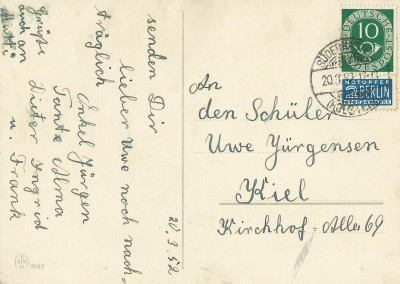 senden Dir
lieber Uwe noch nach-
träglich
Onkel Jürgen
Tante Alma
Dieter Ingrid
u. Frank
Grüße
auch an
Mutti
20.3.52
An
den Schüler
Uwe Jürgensen
Kiel
Kirchhof-Allee 69
DEUTSCHE BUNDESPOST
10
NOTOPFER
2 BERLIN
STEUERMARKE